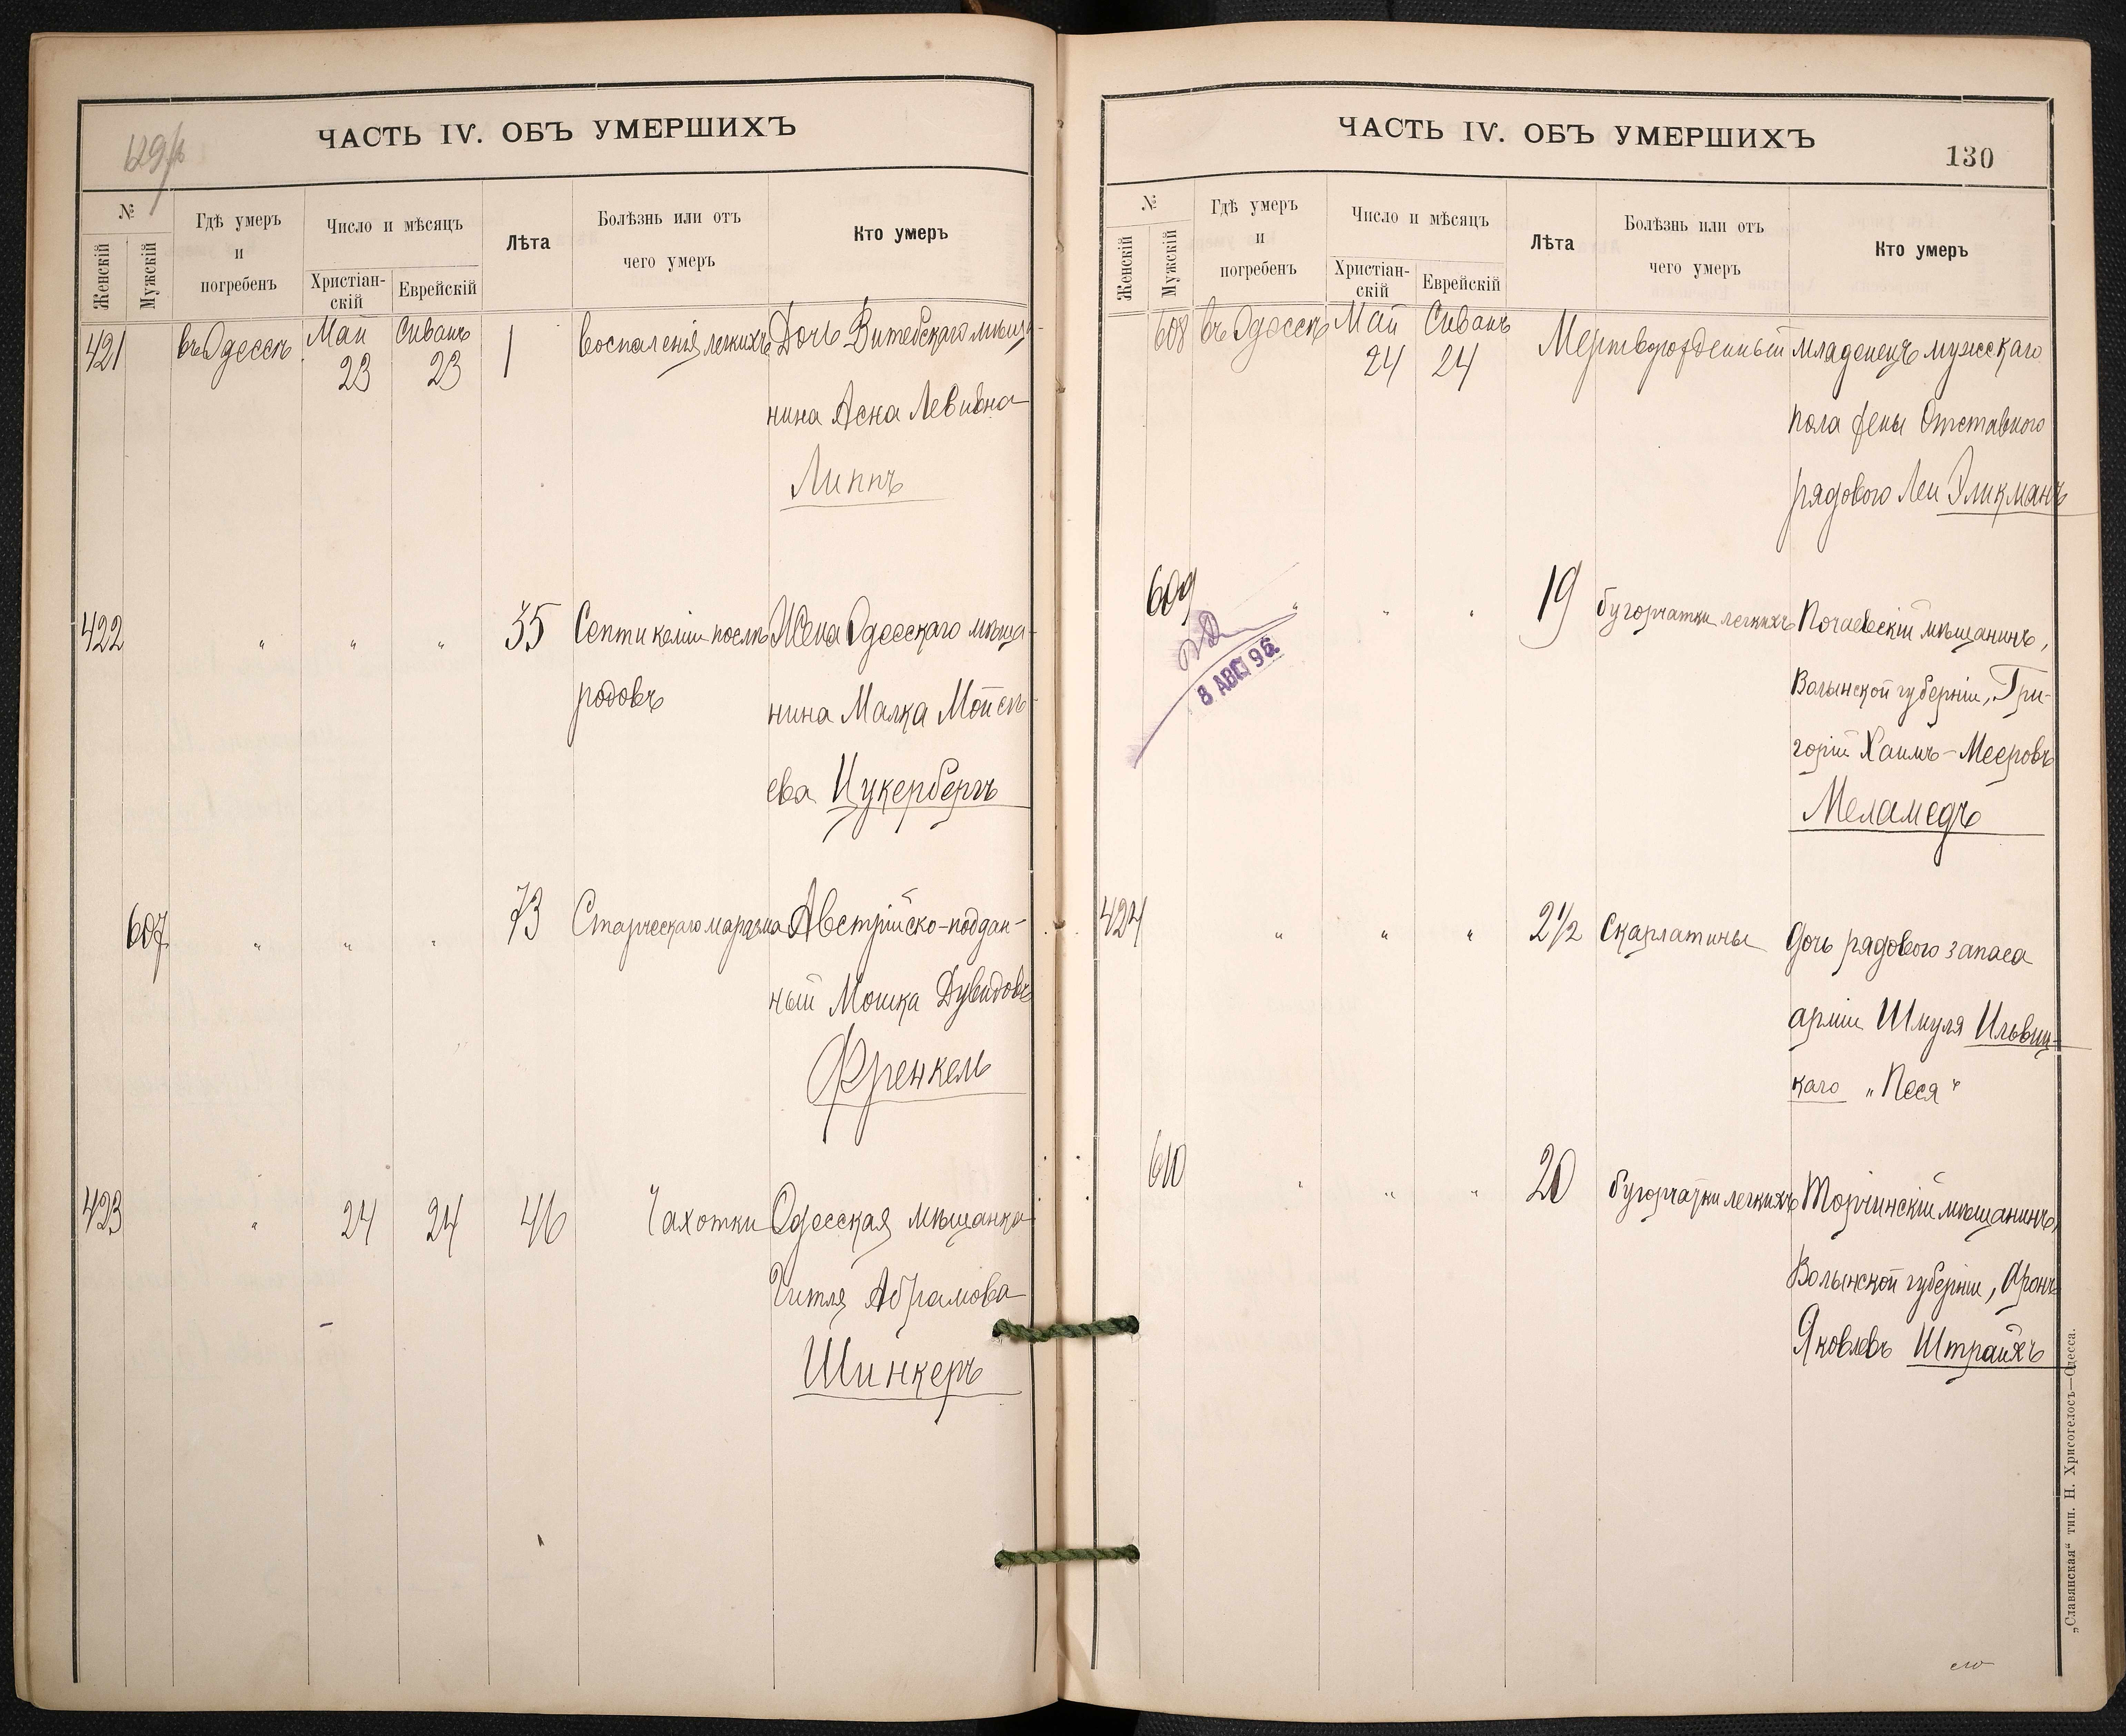 129/об
ЧАСТЬ IV. ОБЪ УМЕРШИХЪ
№
Женскій
Мужскій
Гдѣ умеръ
и
погребенъ
Число и мѣсяцъ
Христіан-
скій
Еврейскій
Лѣта
Болѣзнь или отъ
чего умеръ
Кто умеръ
421 въ Одессѣ Май Сиванъ 1 воспаленія легкихъ Дочь Витебскаго мѣща-
23 23
нина Асна Левивна
Липпъ
422 " " " 35 Септикеміи послѣ Жена Одесскаго мѣща-
родовъ нина Малка Мойсѣ-
ева Цукербергъ
607 " " " 73 Старческаго маразма Австрійско-поддан-
ный Мошка Дувидовъ
Френкель
423 " 24 24 46 Чахотки Одесская мѣщанка
Гитля Абрамова
Шинкеръ
ЧАСТЬ IV. ОБЪ УМЕРШИХЪ
130
№
Женскій
Мужскій
Гдѣ умеръ
и
погребенъ
Число и мѣсяцъ
Христіан-
скій
Еврейскій
Лѣта
Болѣзнь или отъ
чего умеръ
Кто умеръ
608 въ Одессѣ Май Сиванъ Мертворожденный младенецъ мужскаго
24 24
пола жены Отставного
рядового Леи Эликманъ
609 " " " 19 бугорчатки легкихъ Почаевскій мѣщанинъ,
8 АВГ 96.
Волынской губерніи, Гри-
горій Хаимъ-Мееровъ
Меламедъ
424 " " " 2½ Скарлатины дочь рядового запаса
арміи Шмуля Ильвиц-
каго „Песя"
610 " " " 20 бугорчатки легкихъ Торчинскій мѣщанинъ,
Волынской губерніи, Аронъ
Яковлевъ Штрайхъ
„Славянская" тип. Н. Хрисогелосъ—Одесса.